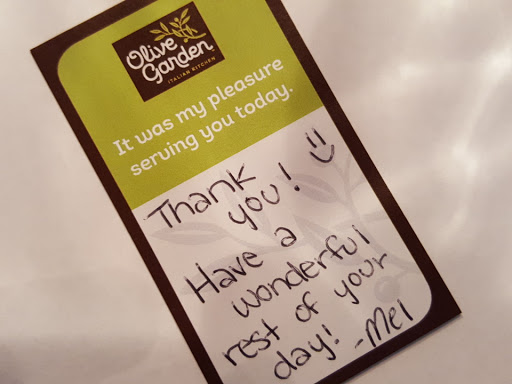 Olive
Garden
ITALIAN KITCHEN
It was my pleasure
serving you today.
Thank
you! :)
Have a
wonderful
rest of your
day! -Mel